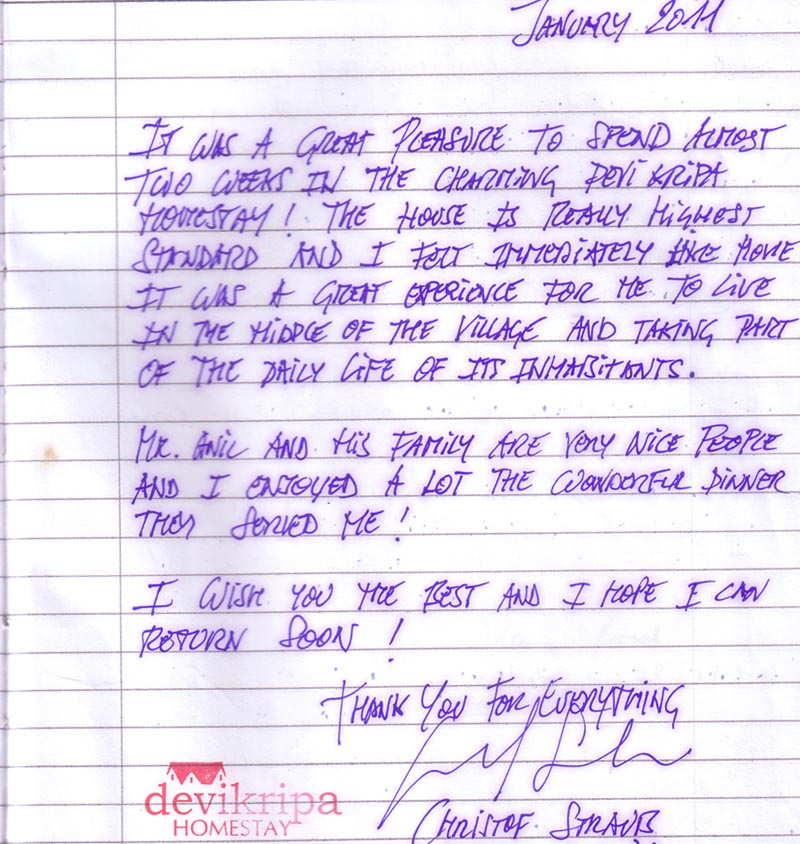 JANUARY 2011
IT WAS A GREAT PLEASURE TO SPEND ALMOST
TWO WEEKS IN THE CHARMING DEVI KRIPA
HOMESTAY! THE HOUSE IS REALLY HIGHEST
STANDARD AND I FELT IMMEDIATELY LIKE HOME
IT WAS A GREAT EXPERIENCE FOR ME TO LIVE
IN THE MIDDLE OF THE VILLAGE AND TAKING PART
OF THE DAILY LIFE OF ITS INHABITANTS.
MR. ANIL AND HIS FAMILY ARE VERY NICE PEOPLE
AND I ENJOYED A LOT THE WONDERFUL DINNER
THEY SERVED ME!
I WISH YOU THE BEST AND I HOPE I CAN
RETURN SOON!
THANK YOU FOR EVERYTHING
CHRISTOF STRAUB
devikripa
HOMESTAY